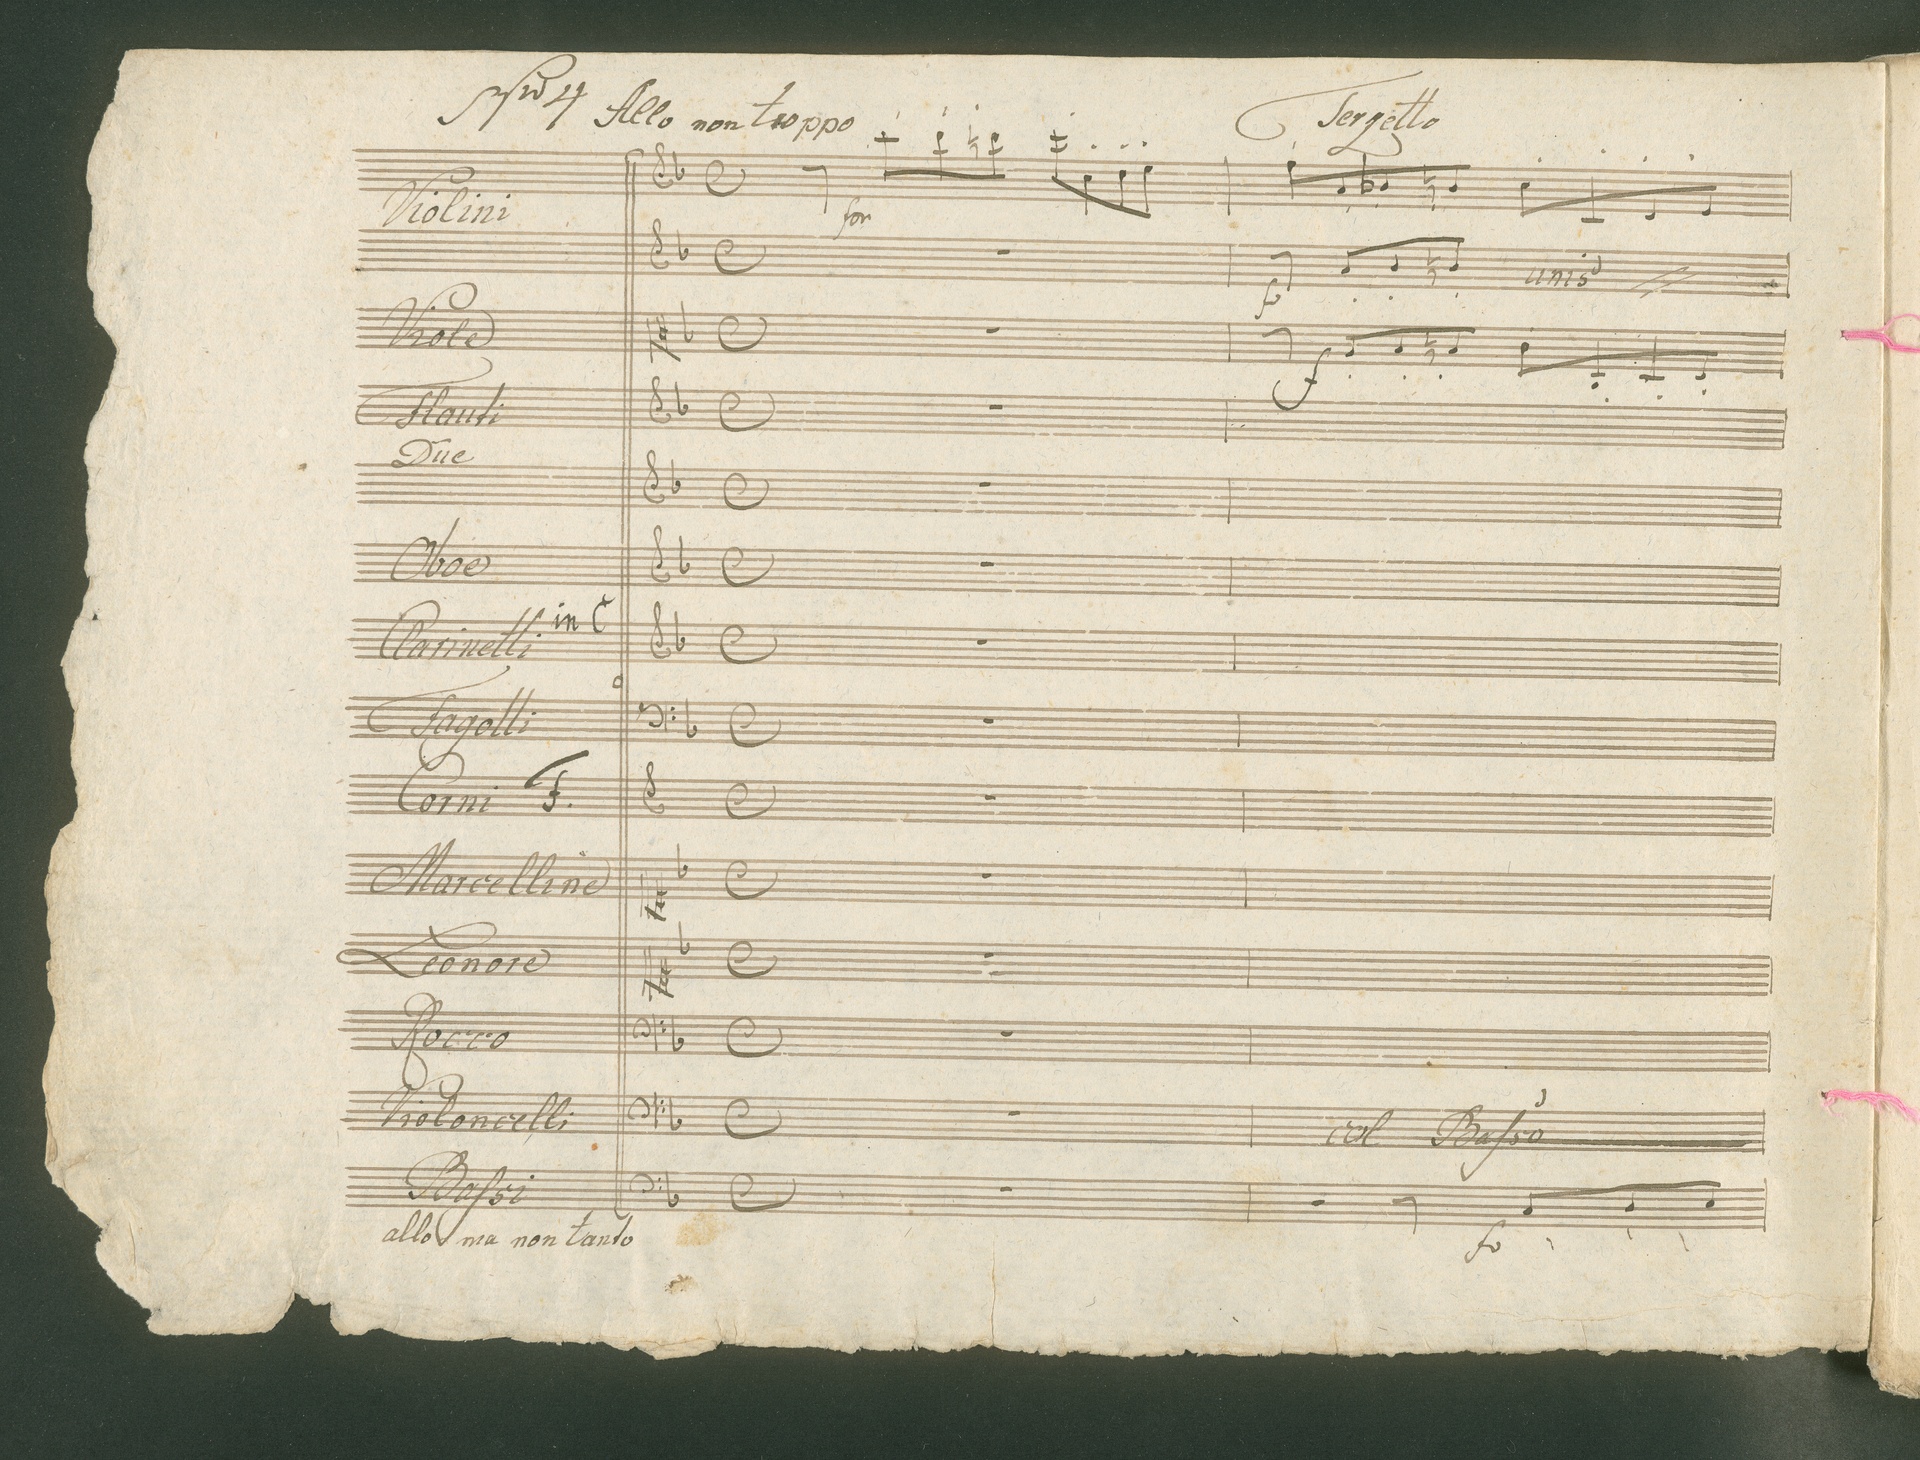 Nro 4 Allo non troppo Terzetto
Violini for
fo unis
Viole f
Flauti
Due
Oboe
Clarinetti in C
Fagotti
Corni F.
Marcelline
Leonore
Rocco
Violoncelli col Basso
Bassi
allo ma non tanto fo